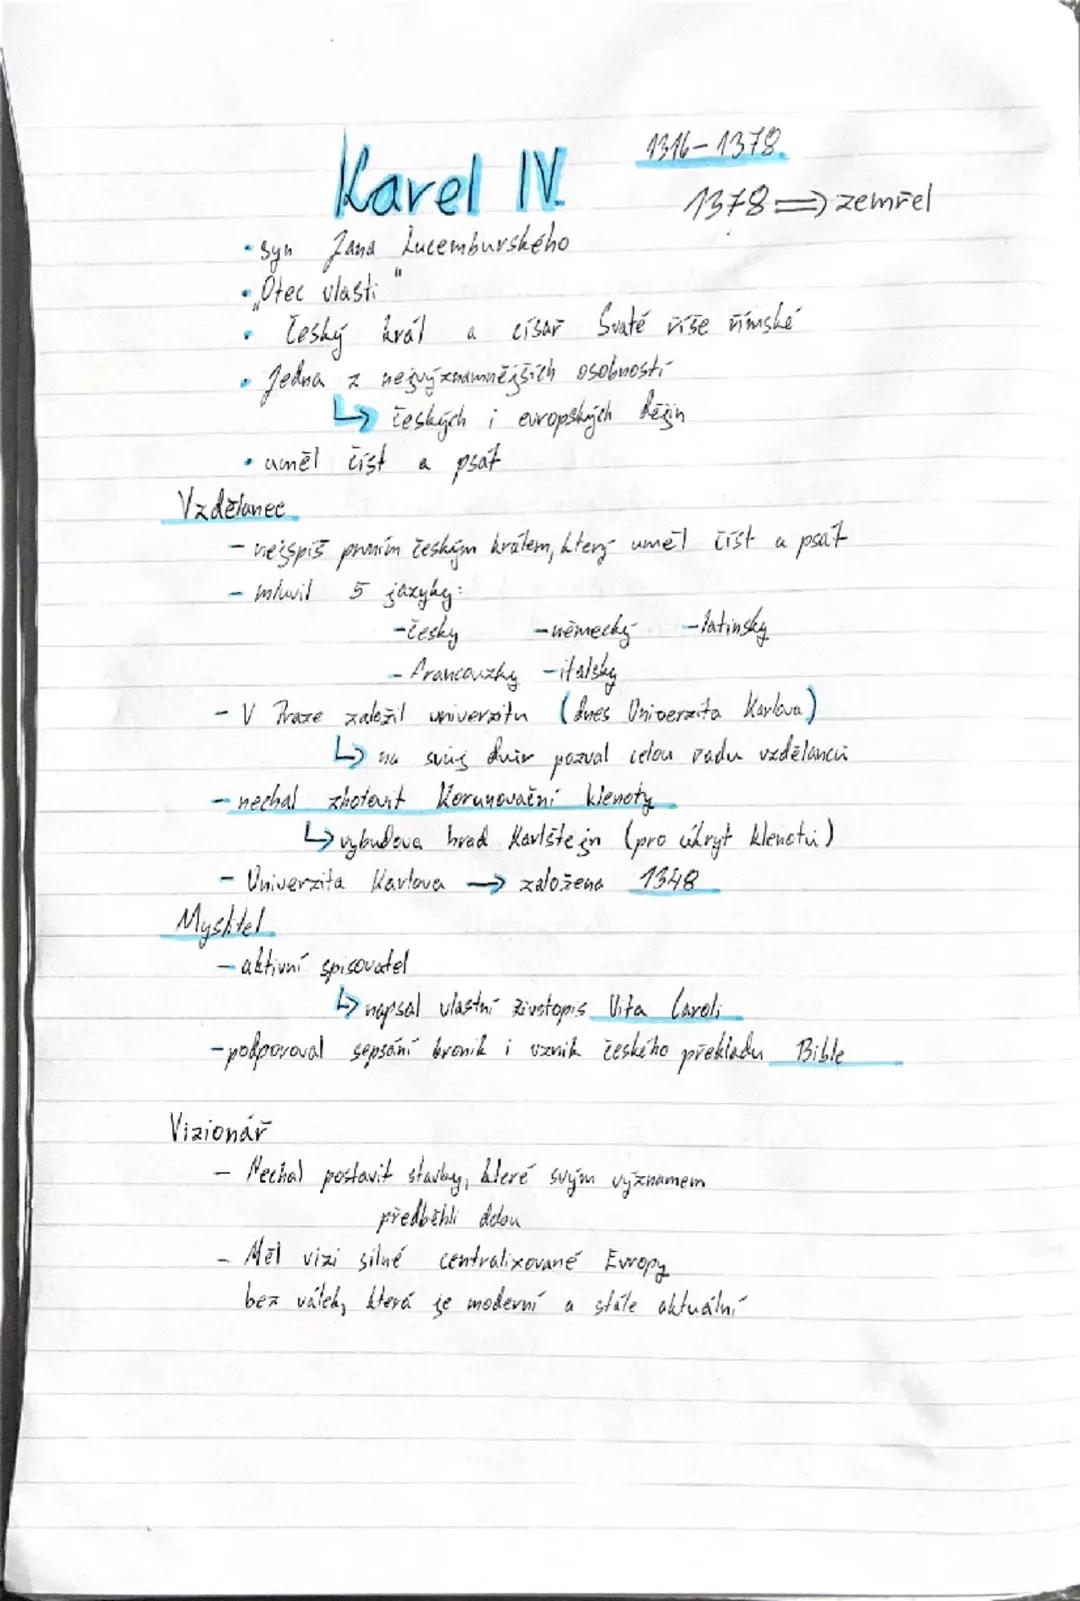 Karel IV. 1316-1378
1378 => zemřel
• syn Jana Lucemburského
• „Otec vlasti"
• Český král a císař Svaté říše římské
• Jedna z nejvýznamnějších osobností
↳ českých i evropských dějin
• uměl číst a psát
Vzdělanec
- nejspíš prvním českým králem, který uměl číst a psát
- mluvil 5 jazyky:
- česky - německy - latinsky
- francouzky - italsky
- V Praze založil univerzitu (dnes Univerzita Karlova)
↳ na svůj dvůr pozval celou řadu vzdělanců
- nechal zhotovit Korunovační klenoty
↳ vybudova hrad Karlštejn (pro úkryt klenotů)
- Univerzita Karlova → založena 1348
Myslitel
- aktivní spisovatel
↳ napsal vlastní životopis Vita Caroli
- podporoval sepsání kronik i vznik českého překladu Bible
Vizionář
- Nechal postavit stavby, které svým významem
předběhli dobu
- Měl vizi silné centralizované Evropy
bez válek, která je moderní a stále aktuální